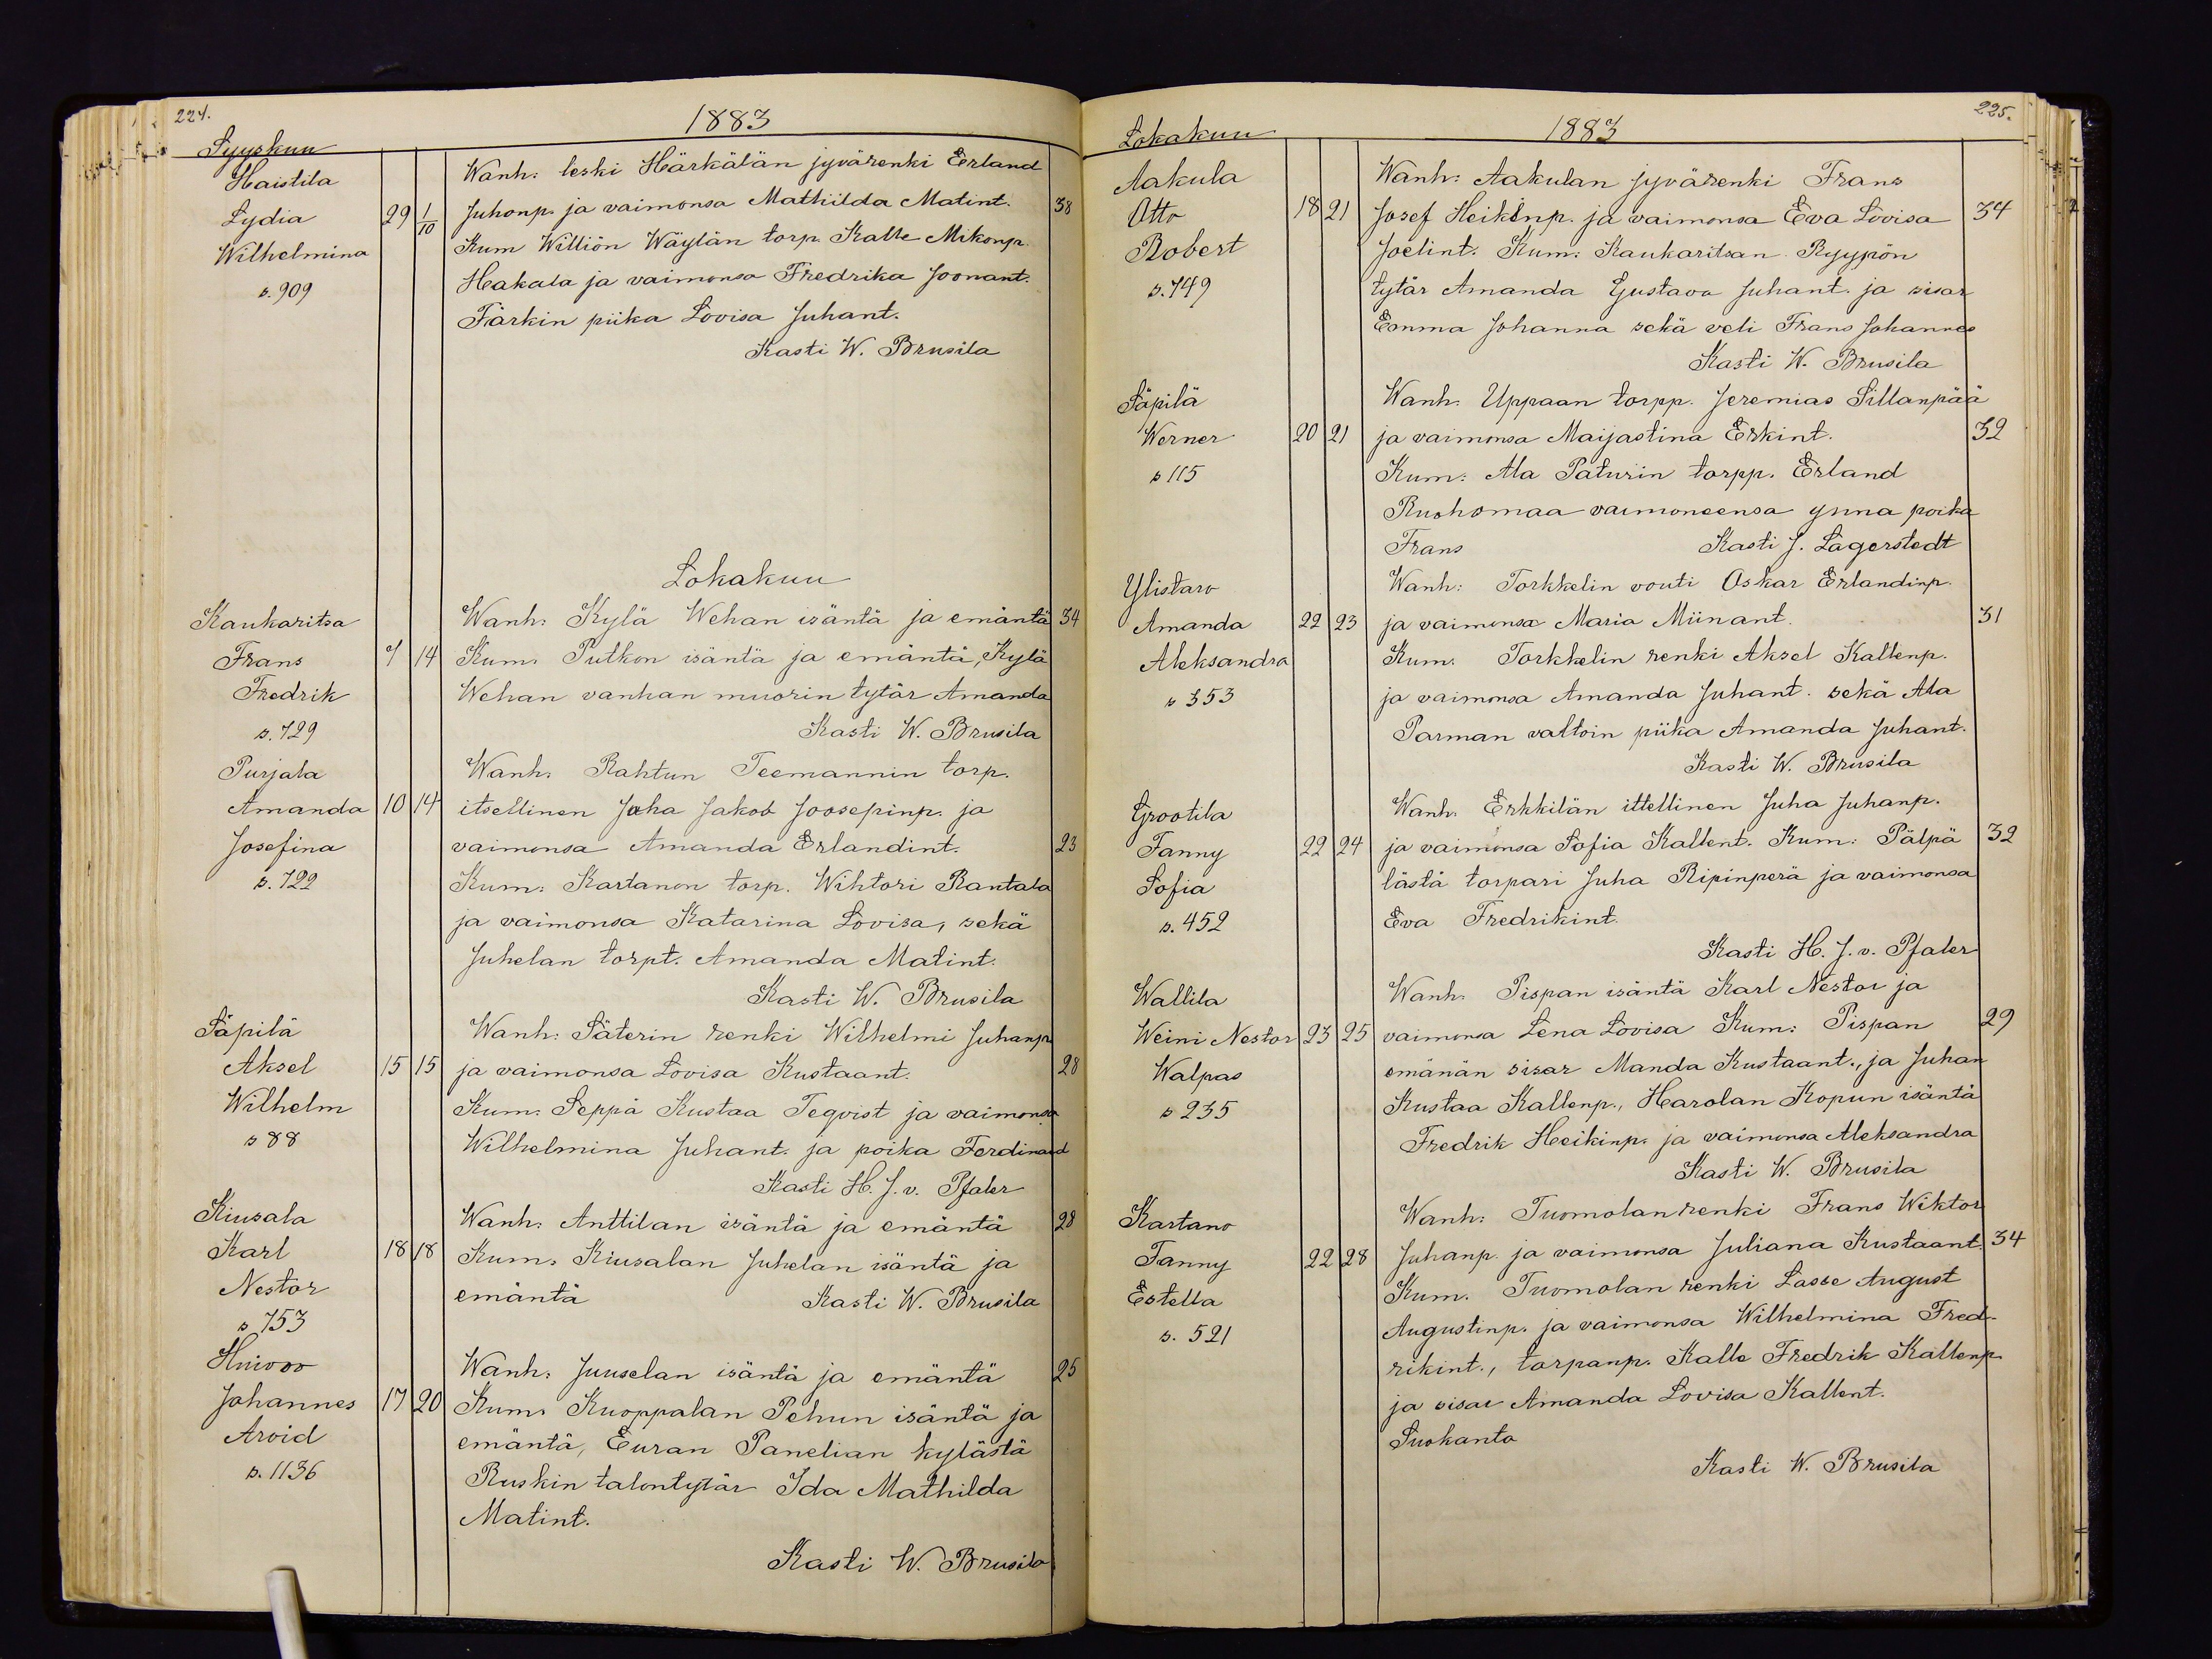 224.
1883
Syyskuu
Haistila
Wanh: leski Härkälän jyvärenki Erland
Lydia 29 1/10 Juhonp. ja vaimonsa Mathilda Matint. 38
Wilhelmina
Kum Williön Wäylän torp. Kalle Mikonp.
s. 909
Hakala ja vaimonsa Fredrika Joonant.
Färkin piika Lovisa Juhant.
Kasti W. Brusila
Lokakuu
Kaukaritsa
Wanh: Kylä Wehan isäntä ja emäntä 34
Frans 7 14 Kum: Putkon isäntä ja emäntä, Kylä
Fredrik
Wehan vanhan muorin tytär Amanda
s. 729
Kasti W. Brusila
Purjala
Wanh: Rahtun Teemannin torp.
Amanda 10 14 itsellinen Juha Jakob Joosepinp. ja
Josefina
vaimonsa Amanda Erlandint. 23
s. 722
Kum: Kartanon torp. Wihtori Rantala
ja vaimonsa Katarina Lovisa, sekä
Juhelan torpt. Amanda Matint.
Kasti W. Brusila
Säpilä
Wanh: Säterin renki Wilhelmi Juhanp.
Aksel 15 15 ja vaimonsa Lovisa Kustaant. 28
Wilhelm
Kum: Seppä Kustaa Teqvist ja vaimonsa
s 88
Wilhelmina Juhant. ja poika Ferdinand
Kasti H. J. v. Pfaler
Kiusala
Wanh: Anttilan isäntä ja emäntä 28
Karl 18 18 Kum: Kiusalan Juhelan isäntä ja
Nestor
emäntä Kasti W. Brusila
s 753
Huivoo
Wanh: Juuselan isäntä ja emäntä 25
Johannes 17 20 Kum: Kuoppalan Pehun isäntä ja
Arvid
emäntä, Euran Panelian kylästä
s. 1136
Ruskin talontytär Ida Mathilda
Matint.
Kasti W. Brusila
225.
1883
Lokakuu
Aakula
Wanh: Aakulan jyvärenki Frans
Otto 18 21 Josef Heikinp. ja vaimonsa Eva Lovisa 34
Robert
Joelint. Kum: Kaukaritsan Ryypön
s. 749
tytär Amanda Gustava Juhant. ja sisar
Emma Johanna sekä veli Frans Johannes
Kasti W. Brusila
Säpilä
Wanh. Uppaan torpp. Jeremias Sillanpää
Werner 20 21 ja vaimonsa Maijastina Erkint. 32
s 115
Kum: Ala Paturin torpp. Erland
Ruohomaa vaimoneensa ynna poika
Frans Kasti J. Lagerstedt
Ylistaro
Wanh: Torkkelin vouti Oskar Erlandinp.
Amanda 22 23 ja vaimonsa Maria Miinant. 31
Aleksandra
Kum: Torkkelin renki Aksel Kallenp.
s 353
ja vaimonsa Amanda Juhant. sekä Ala
Parman valtoin piika Amanda Juhant.
Kasti W. Brusila
Grootila
Wanh. Erkkilän ittellinen Juha Juhanp.
Fanny 22 24 ja vaimonsa Sofia Kallent. Kum: Pälpä 32
Sofia
lästä torpari Juha Ripinperä ja vaimonsa
s. 452
Eva Fredrikint.
Kasti H. J. v. Pfaler
Wallila
Wanh: Pispan isäntä Karl Nestor ja
Weini Nestor 23 25 vaimonsa Lena Lovisa Kum: Pispan 29
Walpas
emänän sisar Manda Kustaant., ja Juhan
s 235
Kustaa Kallenp., Harolan Kopun isäntä
Fredrik Heikinp. ja vaimonsa Aleksandra
Kasti W. Brusila
Kartano
Wanh: Tuomolan renki Frans Wiktor
Fanny 22 28 Juhanp. ja vaimonsa Juliana Kustaant. 34
Estella
Kum. Tuomolan renki Lasse August
s. 521
Augustinp. ja vaimonsa Wilhelmina Fred-
rikint., torpanp. Kalle Fredrik Kallenp.
ja sisar Amanda Lovisa Kallent.
Suokanto
Kasti W. Brusila